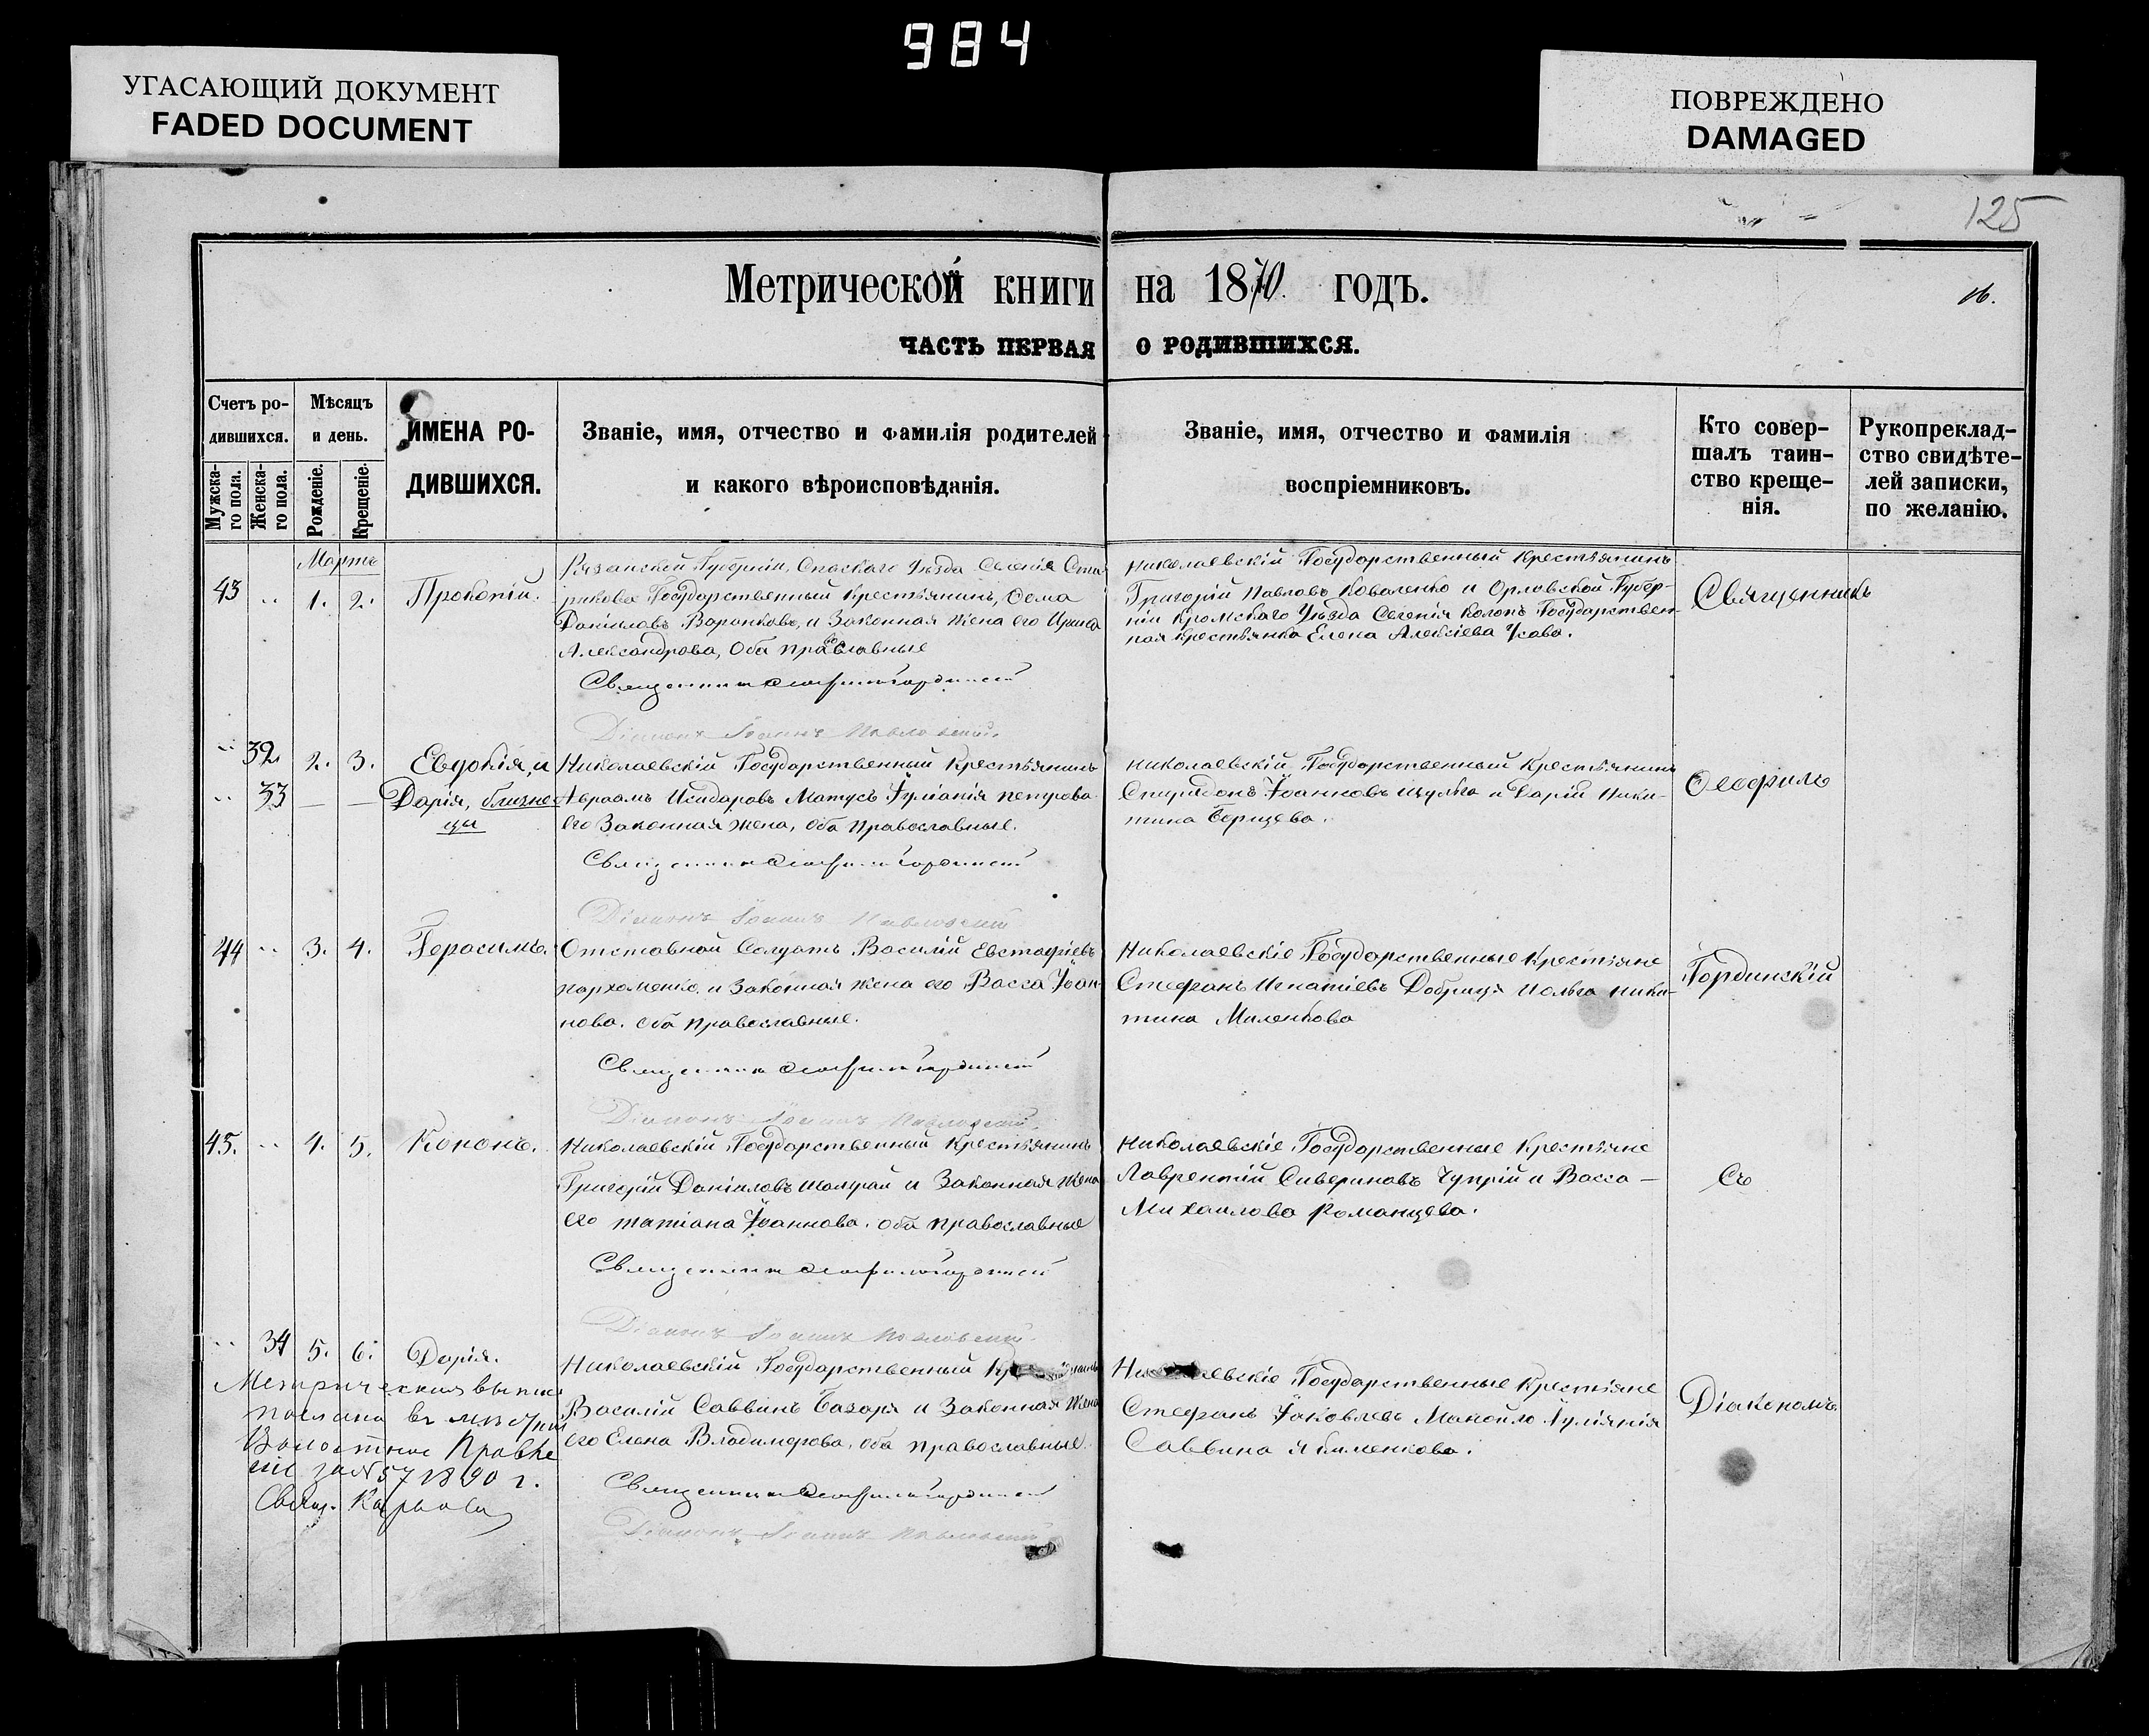 984
УГАСАЮЩИЙ ДОКУМЕНТ
FADED DOCUMENT
ПОВРЕЖДЕНО
DAMAGED
125
Метрической книги на 1870 годъ.
16.
ЧАСТЬ ПЕРВАЯ О РОДИВШИХСЯ.
Счетъ ро-
дившихся.
Мужска-
го пола.
Женска-
го пола.
Мѣсяцъ
и день.
Рожденіе.
Крещеніе.
ИМЕНА РО-
ДИВШИХСЯ.
Званіе, имя, отчество и фамилія родителей
и какого вѣроисповѣданія.
Званіе, имя, отчество и фамилія
воспріемниковъ.
Кто совер-
шалъ таин-
ство креще-
нія.
Рукоприклад-
ство свидѣте-
лей записки,
по желанію.
Мартъ
43 1. 2. Прокопій.
Рязанской Губерніи, Спаскаго Уѣзда Селенія Ста-
рикова Государственный Крестьянинъ, Фома
Даніиловъ Воронковъ, и Законная жена его Ирина
Александрова, Оба православные
Священникъ Феофилъ Гординскій
Діаконъ Іоаннъ Павловскій.
Николаевскій Государственный Крестьянинъ
Григорій Павловъ Коваленко и Орловской Губер-
ніи Кромскаго Уѣзда Селенія Колокъ Государствен-
ная крестьянка Елена Алексіева Усова.
Священникъ
32 2. 3. Евдокія, и
33 Дарія, близне-
цы
Николаевскій Государственный Крестьянинъ
Авраамъ Исидоровъ Матусъ Іуліанія Петрова
его Законная жена, оба Православные.
Священникъ Феофилъ Гординскій
Діаконъ Іоаннъ Павловскій
Николаевскій Государственный Крестьянинъ
Спиридонъ Іоанновъ Шульга и Дарія Ники-
тина Борщева.
Феофилъ
44 3. 4. Герасимъ.
Отставной Солдатъ Василій Евстафіевъ
Пархоменко, и Законная жена его Васса Іоан-
нова. оба Православные.
Священникъ Феофилъ Гординскій
Діаконъ Іоаннъ Павловскій
Николаевскіе Государственные Крестьяне
Стефанъ Игнатіевъ Добриця Иольга Ники-
тина Миленкова
Гординскій
45. 4. 5. Кононъ.
Николаевскій Государственный Крестьянинъ
Григорій Даніиловъ и Законная жена
его татіана Іоаннова. оба православные
Священникъ Феофилъ Гординскій
Діаконъ Іоаннъ Павловскій.
Николаевскіе Государственные Крестьяне
Лаврентій Сивериновъ Чуприй и Васса
Михаилова Романцева.
Съ
34 5. 6. Дарія.
Николаевскій Государственный
Василій Саввинъ Базаря и Законная Жена
его Елена Владимерова, оба православные.
Священникъ Феофилъ Гординскій
Діаконъ Іоаннъ Павловскій
Николаевскіе Государственные Крестьяне
Стефанъ Іаковлевъ Манойло Іуліанія
Саввина Якименкова.
Діакономъ
Метрическая выпись
послана въ
Волостное Правле
ніе за № 57 1890 г.
Свящ.